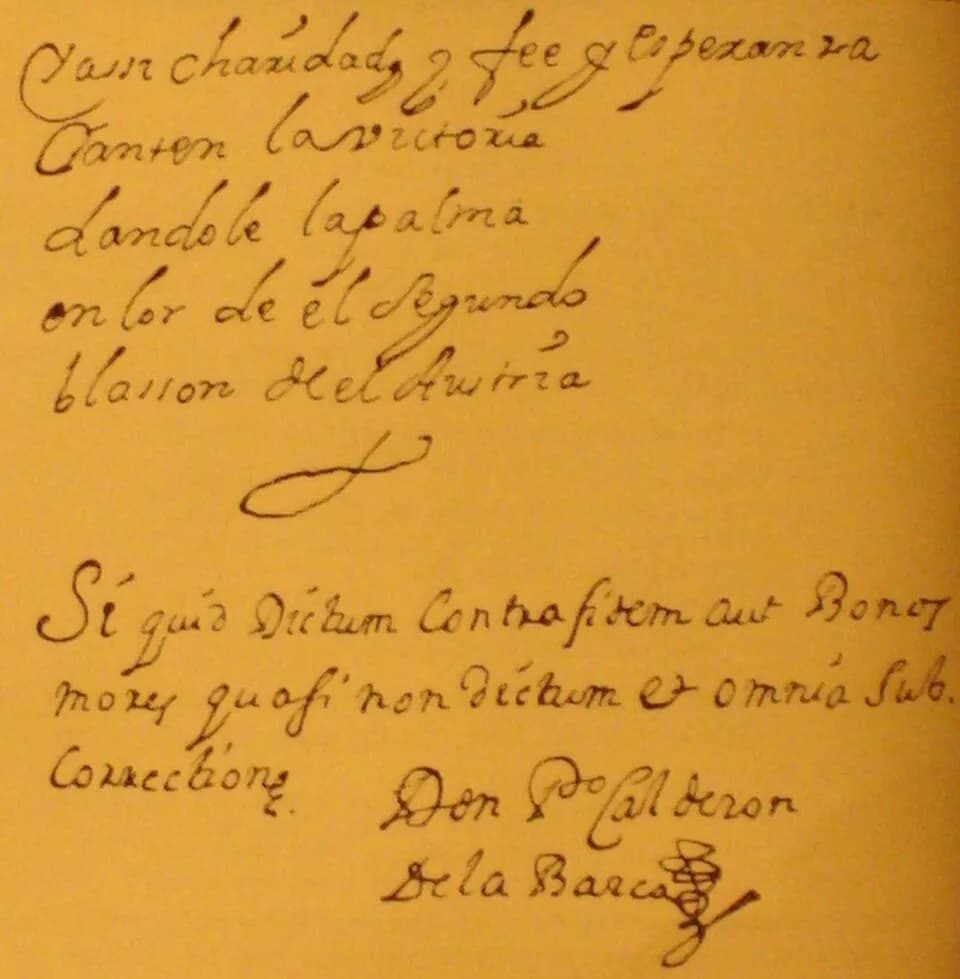 Y assi charidad y fee y esperanza
Canten la victoria
dandole la palma
en lor de el segundo
blasson de el Austria
Si quid Dictum Contra fidem aut Bonos
mores quasi non dictum et omnia Sub.
Correctione.
Don Pdo Calderon
De la Barca